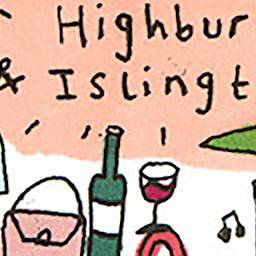 Highbur
& Islingt